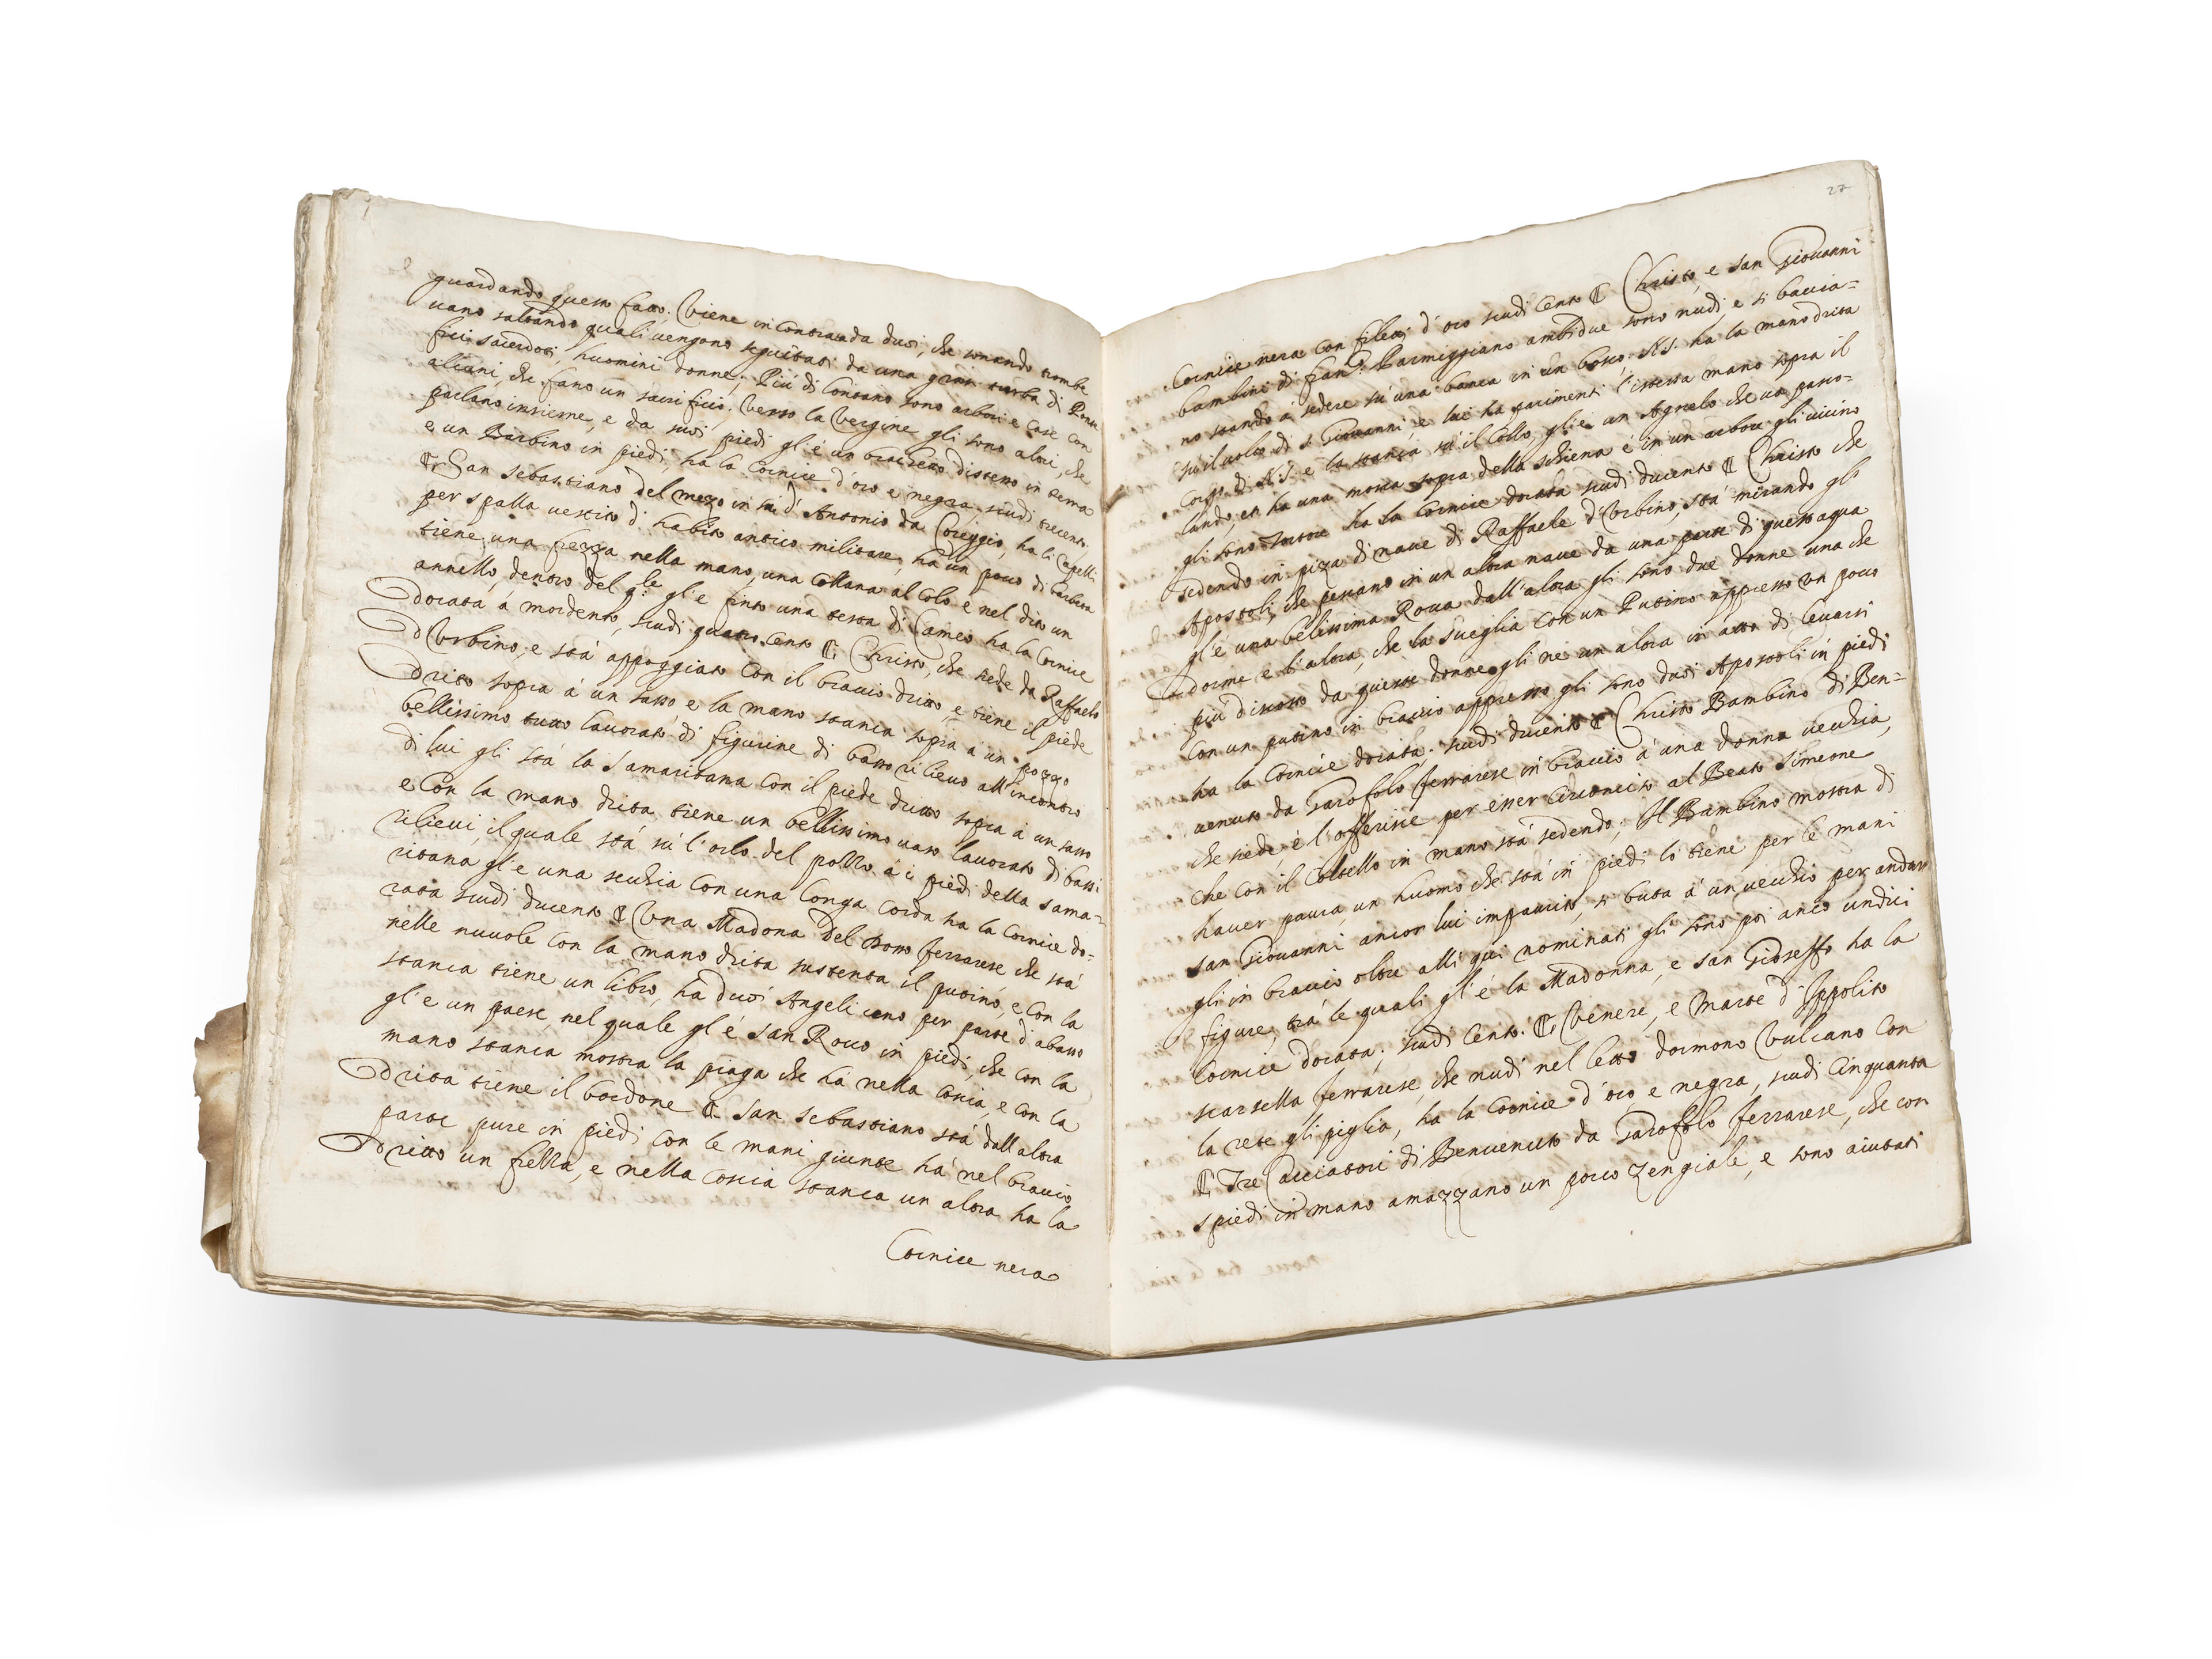 guardando questo fatto. Viene incontrauda duoi, che sonando trombe
uano saltando quali uengono seguitati da una gran turba di Pont
fici sacerdoti, huomini donne; Più di lontano sono arbori e case con
alcuni, che fano un sacrificio; uerso la Vergine gli sono altri, che
parlano insieme, e da suoi piedi gl'è un brachetto disteso in terra
e un Barbino in piedi, ha la Cornice d'oro e negra scudi trecento.
San Sebastiano del mezo in sù d' Antonio da Coreggio, ha li Capelli
per spalla uestito d' habito antico militare, ha un poco di barbeta
tiene una frezza nella mano, una Collana al Colo e nel dito un
annello, dentro del q.le gl'è finto una testa di Cameo ha la Cornice
dorata à mordento, scudi quatro cento Christo, che siede da Raffaelo
d'Urbino, e stà appoggiato con il bracio drito, e tiene il piede
drito sopra à un sasso e la mano stanca sopra à un pozzo
bellissimo tutto lauorato di figurine di basso rilieuo all'incontro
di lui gli stà la Samaritana con il piede dritto sopra à un sasso
e con la mano drita tiene un bellissimo uaso lauorato di bassi
rilieui, il quale stà sù l'orlo del pozzo à i piedi della sama=
ritana gl'è una sechia con una longa corda ha la Cornice do=
rata scudi ducento Una Madona del Dosso ferrarese che stà
nelle nuuole con la mano drita sustenta il putino, e con la
stanca tiene un libro, ha duoi Angeli uno per parte d'abasso
gl'è un paese, nel quale gl'è San Roco in piedi, che con la
mano stanca mostra la piaga che hà nella coscia, e con la
drita tiene il bordone San Sebastiano stà dall'altra
parte pure in piedi con le mani giunte hà nel bracio
dritto un frezza, e nella coscia stanca un altra ha la
Cornice nera
27
Cornice nera con filetti d'oro scudi cento Christo, e san Giovanni
bambini di Fran.co Parmiggiano ambidue sono nudi, e si baccia=
no stando à sedere sù una banca in un bosco, N.S. ha la mano drita
sù il uolto di S. Giovanni, e lui ha parimenti l'istessa mano sopra il
Corpo di N.S. e la stanca sù il Collo, gli è un Agnelo che uà passo=
lando, et ha una mosca sopra della schiena è in un arbore gli uicino
gli sono Tortore ha la Cornice dorata scudi ducento Christo che
sedendo in piza di naue di Raffaele d'Urbino, stà mirando gl'
Apostoli, che pescano in un altra naue da una parte di quest'aqua
gl'è una belissima Roca dall'altra gli sono due donne una che
dorme e l'altra, che la sueglia con un Putino appresso un poco
più discosto da queste donne gli ne un altra in atto di leuarsi
con un putino in bracio appresso gli sono duoi Apostoli in piedi
ha la Cornice dorata; scudi ducento Christo Bambino di Ben=
uenuto da Garofolo ferrarese in bracio à una donna uechia,
che siede, è l'offerisce per esser circonciso al Beato Simeone
che con il Coltello in mano stà sedendo; Il Bambino mostra di
hauer paura, un huomo che stà in piedi lo tiene per le mani
san Giovanni ancor lui impaurito, si buta à un uechio per andar
gli in bracio oltre alli qui nominati gli sono poi anco undici
figure, trà le quali gl'è la Madonna, e san Gioseffo ha la
Cornice dorata; scudi cento. Venere, e Marte d'Ippolito
scarsella ferrarese, che nudi nel letto dormono Vulcano con
la rete gli piglia, ha la Cornice d'oro e negra, scudi cinquanta
Tre Cacciatori di Benuenuto da Garofolo ferrarese, che con
spiedi in mano amazzano un porco zengiale, e sono aiutati